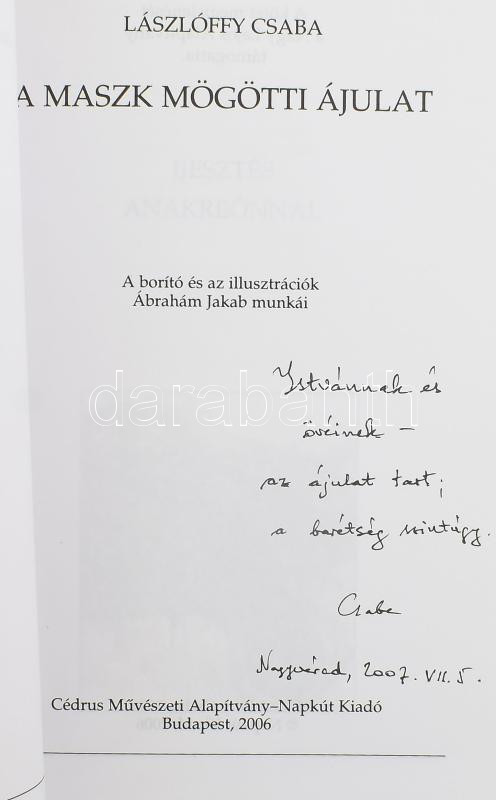 LÁSZLÓFFY CSABA
A MASZK MÖGÖTTI ÁJULAT
IJESZTÉS
ANAKREÓNNAL
A borító és az illusztrációk
Ábrahám Jakab munkái
darabanth
Istvánnak és
övéinek –
az ájulat tart;
a barátság szintúgy.
Csaba
Nagyvárad, 2007. VII. 5.
Cédrus Művészeti Alapítvány–Napkút Kiadó
Budapest, 2006